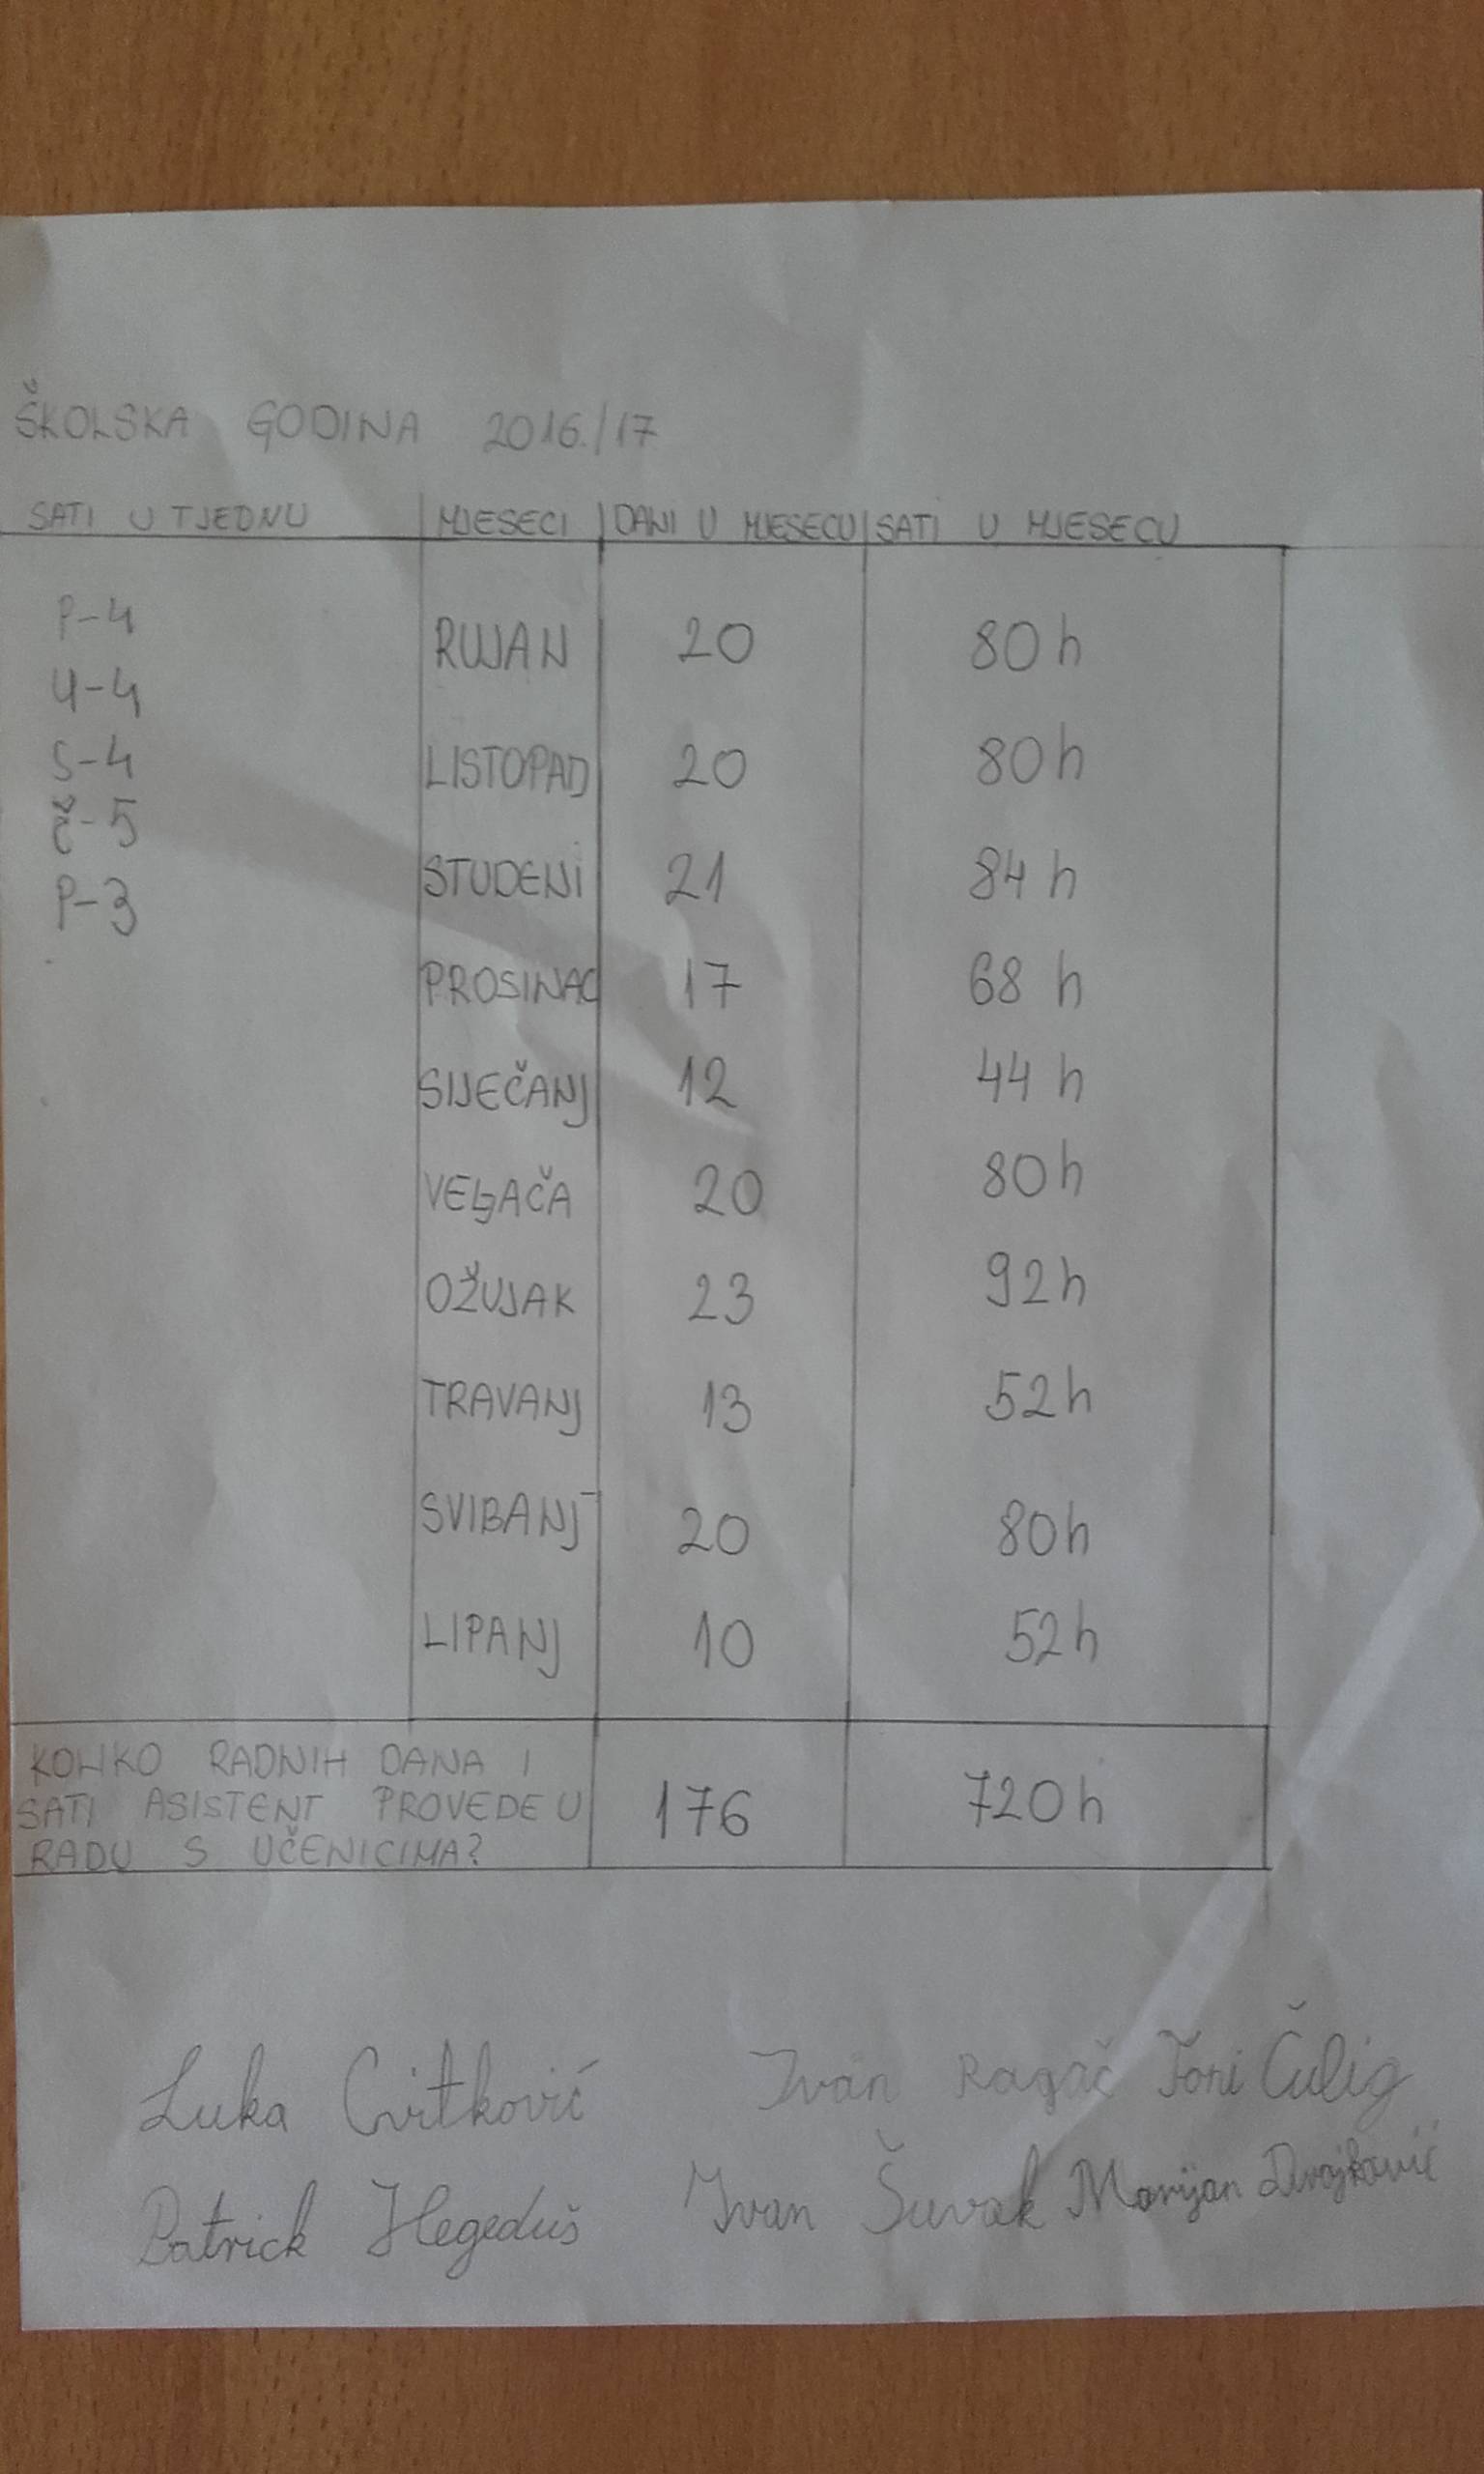 ŠKOLSKA GODINA 2016./17
SATI U TJEDNU MJESECI DANI U MJESECU SATI U MJESECU
P-4
U-4
S-4
Č-5
P-3
RUJAN 20 80 h
LISTOPAD 20 80 h
STUDENI 21 84 h
PROSINAC 17 68 h
SIJEČANJ 12 44 h
VELJAČA 20 80 h
OŽUJAK 23 92 h
TRAVANJ 13 52 h
SVIBANJ 20 80 h
LIPANJ 10 52 h
KOLIKO RADNIH DANA I
SATI ASISTENT PROVEDE U
RADU S UČENICIMA?
176 720 h
Luka Cvitković Ivan Ragač Toni Čulig
Patrick Hegeduš Ivan Šuvak Marijan Dvojković